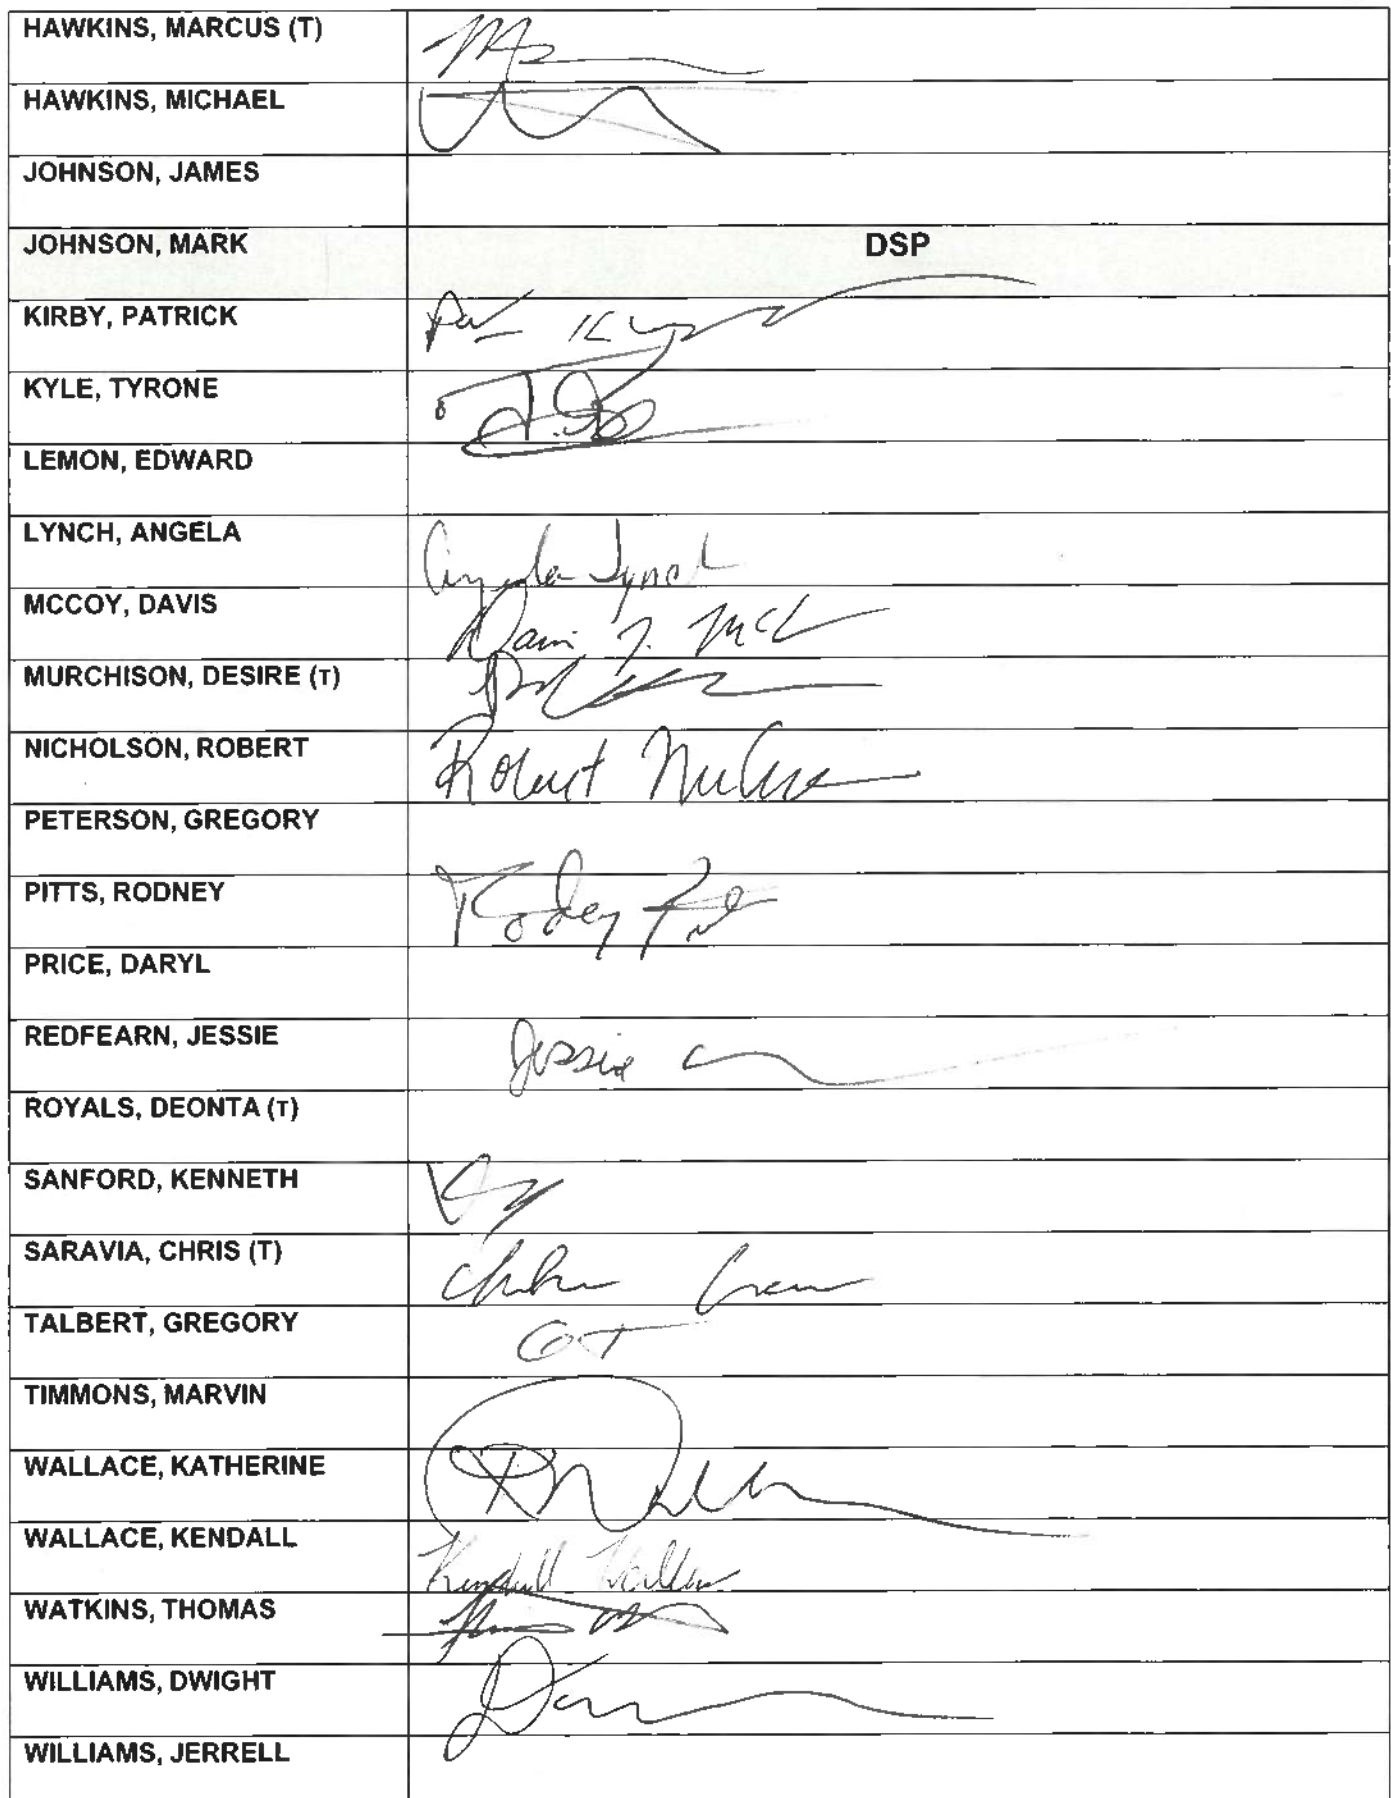 HAWKINS, MARCUS (T)
HAWKINS, MICHAEL
JOHNSON, JAMES
JOHNSON, MARK DSP
KIRBY, PATRICK Pat
KYLE, TYRONE
LEMON, EDWARD
LYNCH, ANGELA Angela Lynch
MCCOY, DAVIS
MURCHISON, DESIRE (T)
NICHOLSON, ROBERT Robert
PETERSON, GREGORY
PITTS, RODNEY
PRICE, DARYL
REDFEARN, JESSIE Jessie
ROYALS, DEONTA (T)
SANFORD, KENNETH
SARAVIA, CHRIS (T)
TALBERT, GREGORY GT
TIMMONS, MARVIN
WALLACE, KATHERINE
WALLACE, KENDALL Kendall Wallace
WATKINS, THOMAS
WILLIAMS, DWIGHT
WILLIAMS, JERRELL